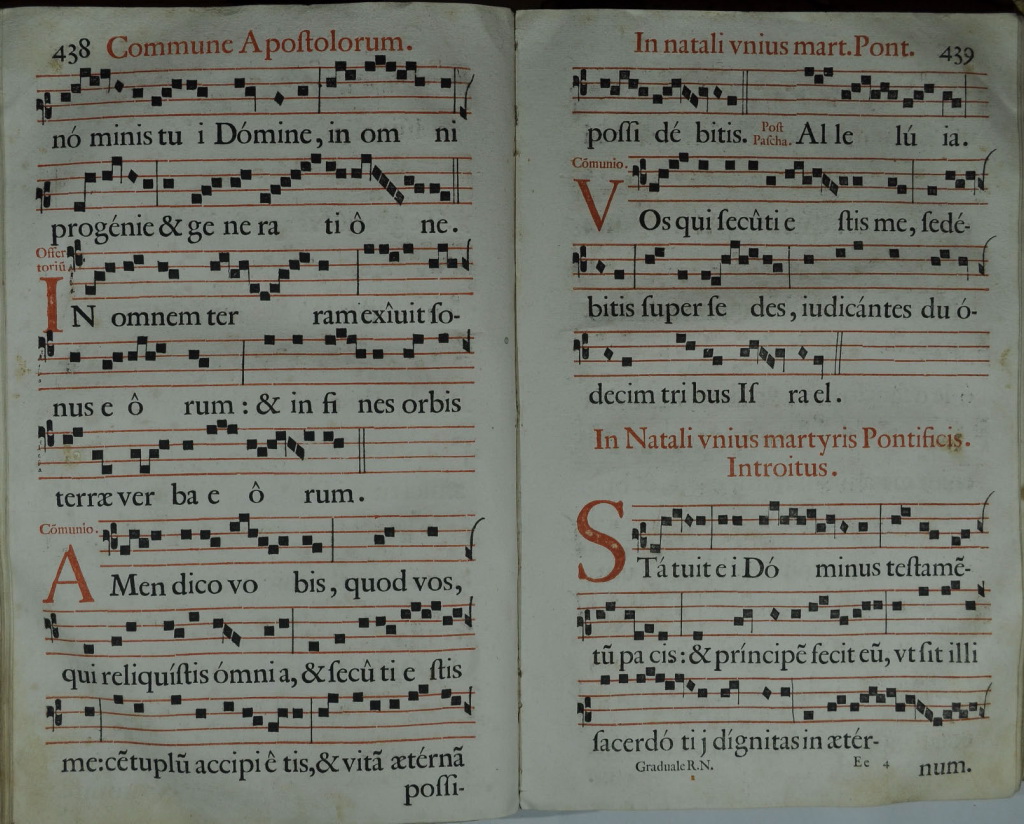 438 Commune Apoſtolorum.
nó minis tu i Dómine, in om ni
progénie & ge ne ra ti ô ne.
Offer
toriũ
IN omnem ter ram exîuit ſo-
nus e ô rum : & in fi nes orbis
terræ ver ba e ô rum.
Cõmunio.
AMen dico vo bis, quod vos,
qui reliquíſtis ómni a, & ſecû ti e ſtis
me: cẽtuplũ accipi ê tis, & vitã ætérnã
poſſi-
In natali vnius mart. Pont. 439
poſſi dé bitis. Poſt Paſcha. Al le lú ia.
Cõmunio.
VOs qui ſecûti e ſtis me, ſedé-
bitis ſuper ſe des, iudicántes du ó-
decim tri bus Iſ ra el.
In Natali vnius martyris Pontificis.
Introitus.
STá tuit e i Dó minus teſtamẽ-
tũ pa cis : & príncipẽ fecit eũ, vt ſit illi
ſacerdó ti j dígnitas in ætér-
Graduale R.N. Ee 4 num.